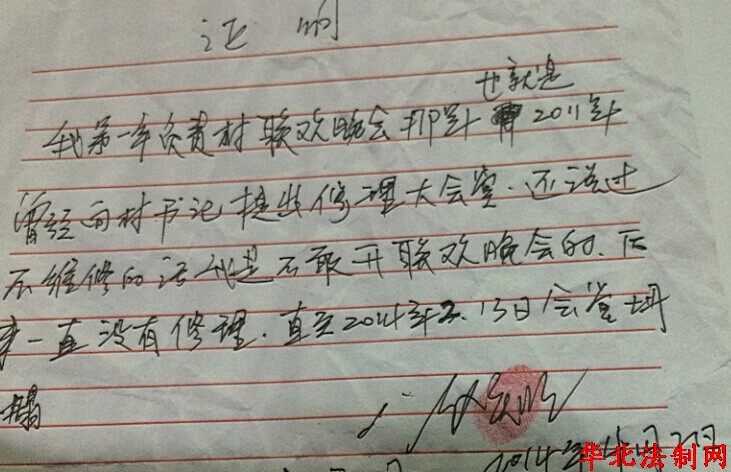 证明
也就是
我第一年负责村联欢晚会那年 2011年
曾经向村书记提出修理大会堂.还说过
不维修的话我是不敢开联欢晚会的.后
来一直没有修理.直至2014年2.13日会堂坍
塌
2014年 月 日
华北法制网